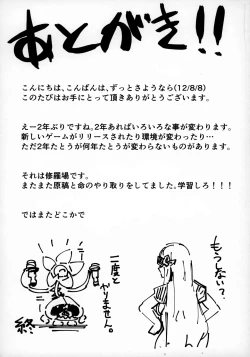 あとがき!!
こんにちは、こんばんは、ずっとさようなら(12/8/8)
このたびはお手にとって頂きありがとうございます。
えー2年ぶりですね。2年あればいろいろな事が変わります。
新しいゲームがリリースされたり環境が変わったり…
ただ2年たとうが何年たとうが変わらないものがあります。
それは修羅場です。
またまた原稿と命のやり取りをしてました。学習しろ!!!
ではまたどこかで
もうしない?
一度と
やりません。
終